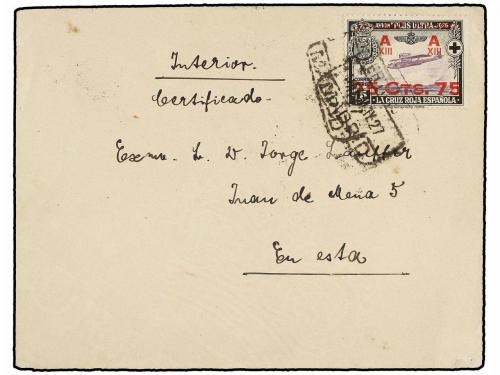 AVION PLUS ULTRA 1926
A A
XIII XIII
75 Cts. 75
LA CRUZ ROJA ESPAÑOLA
MADRID
27
Interior.
Certificado.
Exmo. Sr. D. Jorge
Juan de Mena 5
En esta